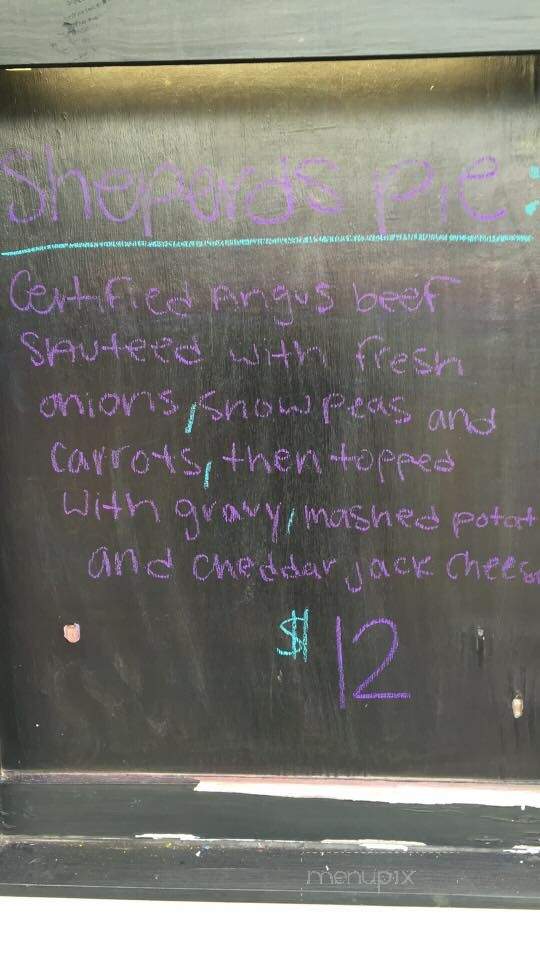 Sheperds pie:
Certified Angus beef
Sauteed with fresh
onions, snow peas and
carrots, then topped
with gravy, mashed potat
and cheddar jack chees
$12
menupix